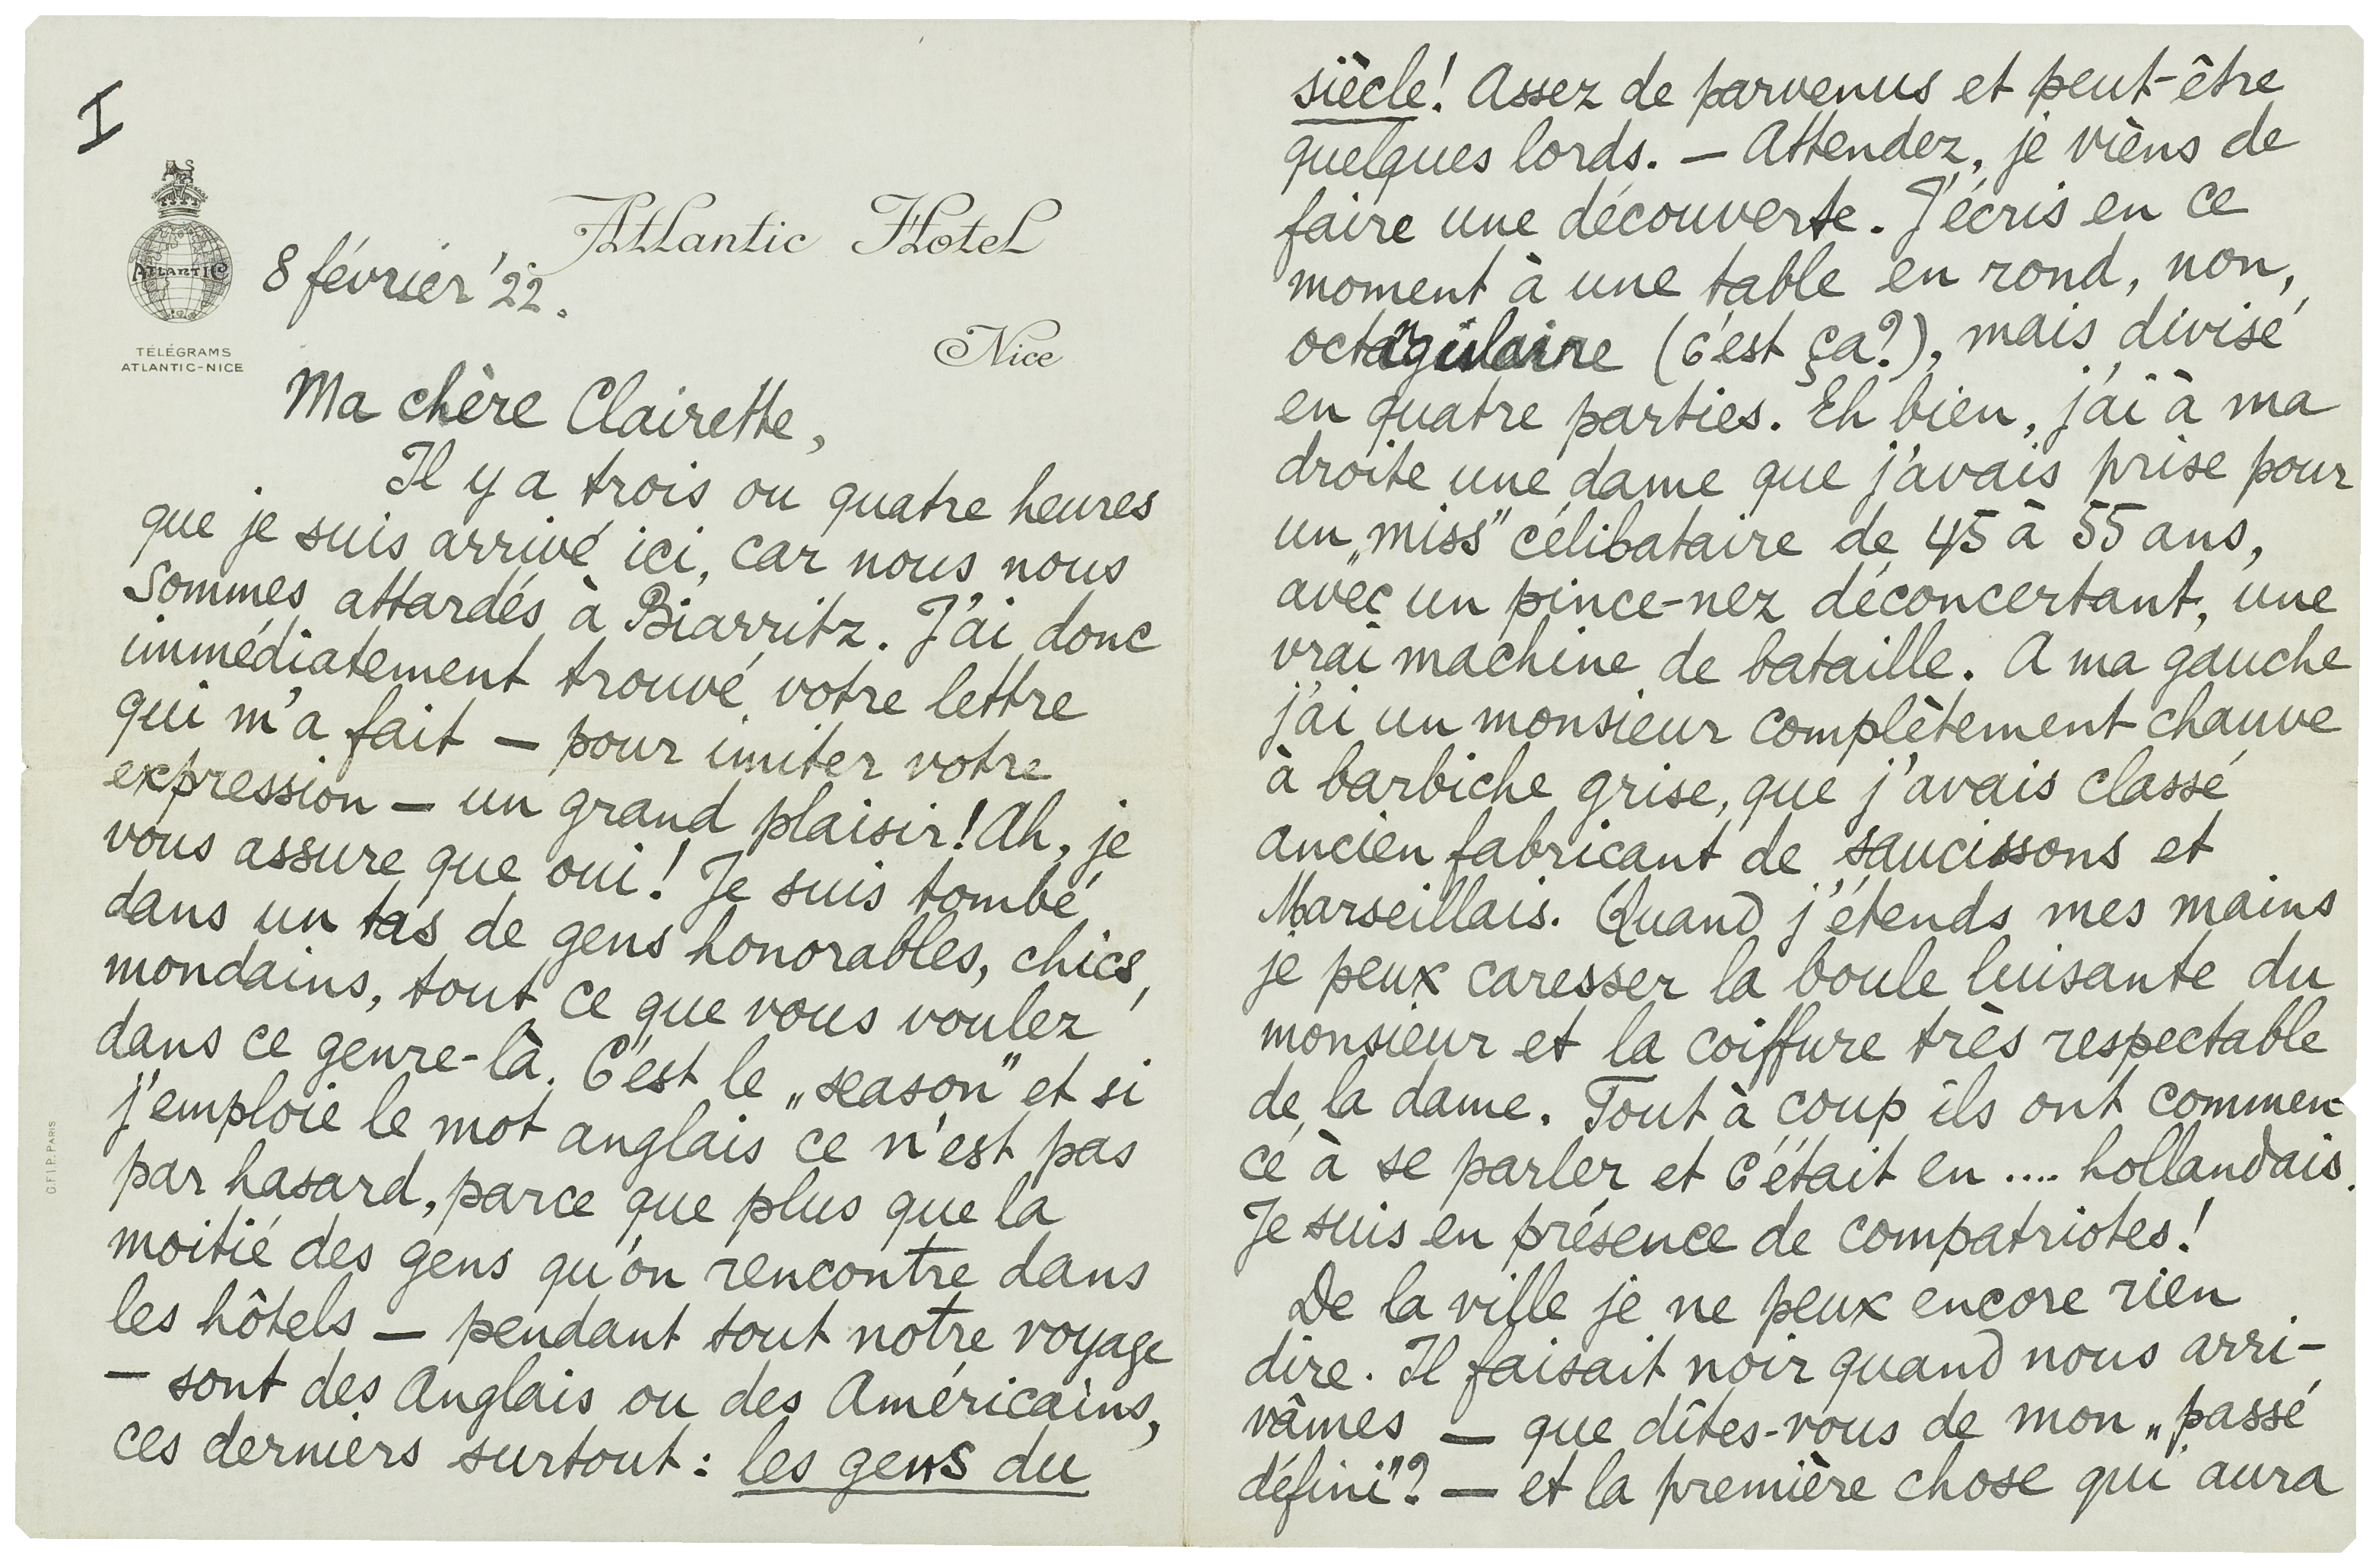 I
ATLANTIC
TÉLÉGRAMS
ATLANTIC-NICE
Atlantic Hotel
Nice
8 février '22.
Ma chère Clairette,
Il y a trois ou quatre heures
que je suis arrivé ici, car nous nous
sommes attardés à Biarritz. J'ai donc
immédiatement trouvé votre lettre
qui m'a fait — pour imiter votre
expression — un grand plaisir! Ah, je
vous assure que oui! Je suis tombé
dans un tas de gens honorables, chics,
mondains, tout ce que vous voulez
dans ce genre-là. C'est le „season" et si
j'emploie le mot anglais ce n'est pas
par hasard, parce que plus que la
moitié des gens qu'on rencontre dans
les hôtels — pendant tout notre voyage
— sont des Anglais ou des Américains,
ces derniers surtout: les gens du
G.F.I.P. PARIS
siècle! Assez de parvenus et peut-être
quelques lords. — Attendez, je vièns de
faire une découverte. J'écris en ce
moment à une table en rond, non,
octangulaire (c'est ça?), mais divisé
en quatre parties. Eh bien, j'ai à ma
droite une dame que j'avais prise pour
un „miss" célibataire de 45 à 55 ans,
avec un pince-nez déconcertant, une
vrai machine de bataille. A ma gauche
j'ai un monsieur complètement chauve
à barbiche grise, que j'avais classé
ancien fabricant de saucissons et
Marseillais. Quand j'étends mes mains
je peux caresser la boule luisante du
monsieur et la coiffure très respectable
de la dame. Tout à coup ils ont commen-
cé à se parler et c'était en .... hollandais.
Je suis en présence de compatriotes!
De la ville je ne peux encore rien
dire. Il faisait noir quand nous arri-
vâmes — que dîtes-vous de mon „passé
défini"? — et la première chose qui aura